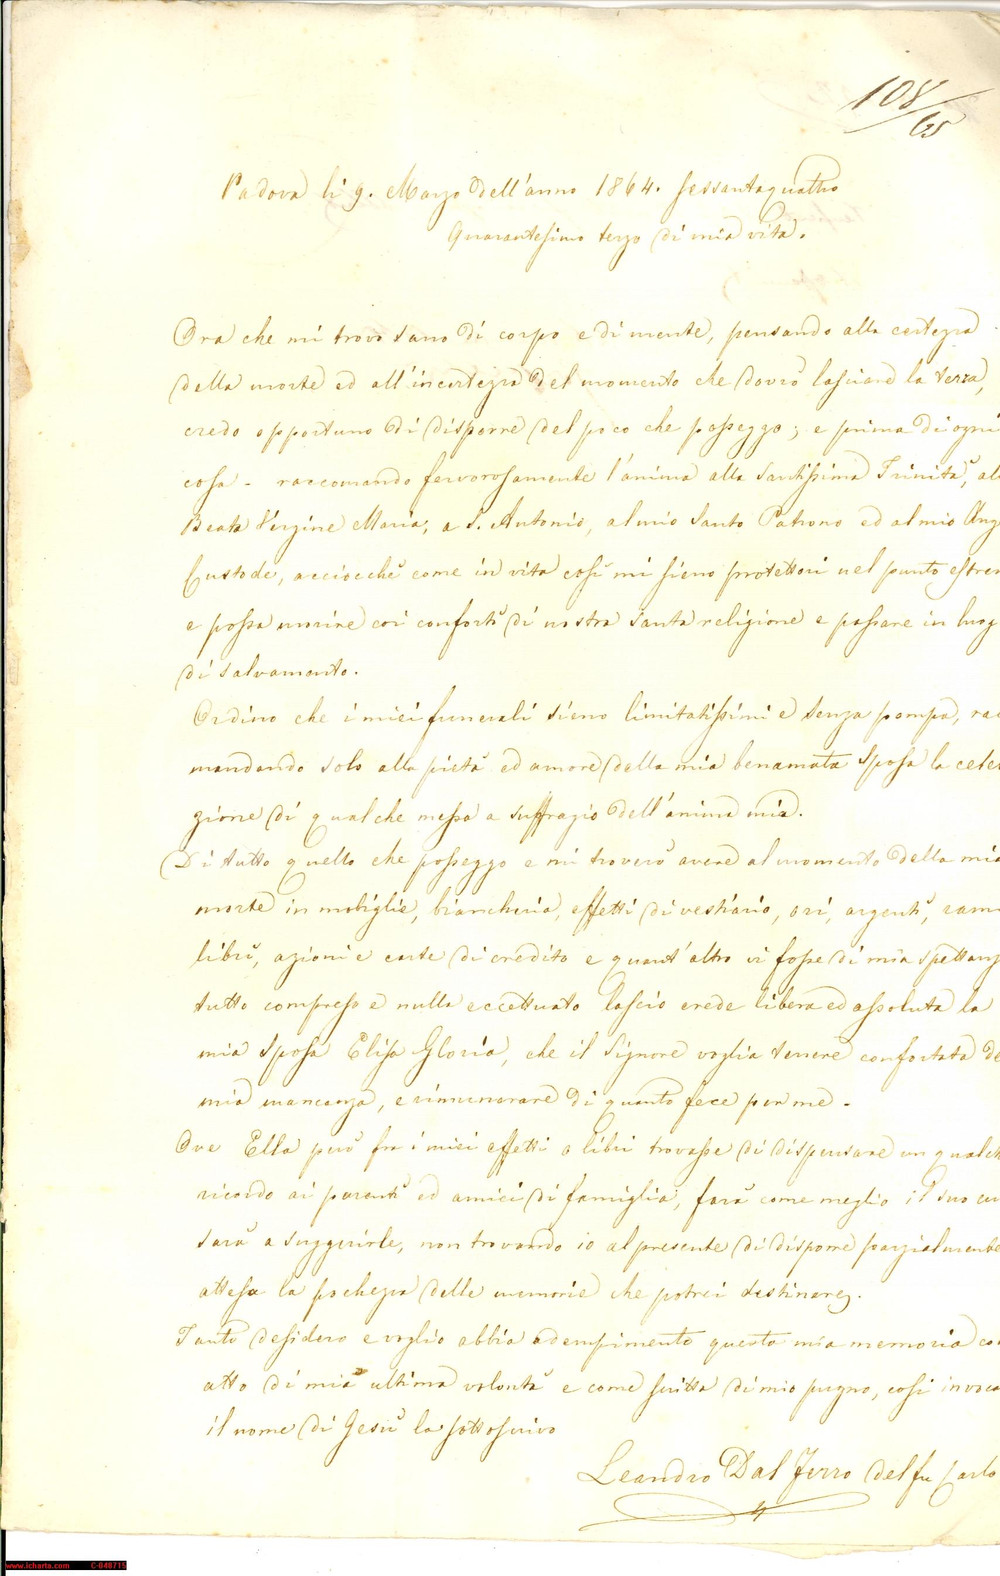 108/65
Padova li 9. Marzo dell'anno 1864. sessantaquattro
Quarantesimo terzo di mia vita.
Ora che mi trovo sano di corpo e di mente, pensando alla certezza
della morte ed all'incertezza del momento che dovrò lasciare la terra,
credo opportuno di disporre del poco che posseggo; e prima di ogni
cosa - raccomando fervorosamente l'anima alla Santissima Trinità, al
Beata Vergine Maria, a S. Antonio, al mio Santo Patrono ed al mio Ang
Custode, acciocchè come in vita così mi sieno protettori nel punto estrem
e possa morire coi conforti di nostra santa religione e passare in luog
di salvamento.
Ordino che i miei funerali sieno limitatissimi e senza pompa, rac
mandando solo alla pietà ed amore della mia benamata Sposa la celeb
zione di qualche messa a suffragio dell'anima mia.
Di tutto quello che posseggo e mi troverò avere al momento della mia
morte in mobiglie, biancheria, effetti di vestiario, ori, argenti, rami
libri, azioni e carte di credito e quant'altro vi fosse di mia spettanz
tutto compreso e nulla eccettuato lascio erede libera ed assoluta la
mia Sposa Elisa Gloria, che il Signore voglia tenere confortata de
mia mancanza, e rimunerare di quanto fece per me -
Ove Ella però fra i miei effetti o libri trovasse di dispensare un qualch
ricordo ai parenti ed amici di famiglia, farà come meglio il suo cu
sarà a suggerirle, non trovando io al presente di disporre parzialmente
attesa la pochezza delle memorie che potrei destinare.
Tanto desidero e voglio abbia adempimento questa mia memoria co
atto di mia ultima volontà e come scritta di mio pugno, così invoca
il nome di Gesù la sottoscrivo
Leandro Dal Ferro del fu Carlo
www.icharta.com C-040715